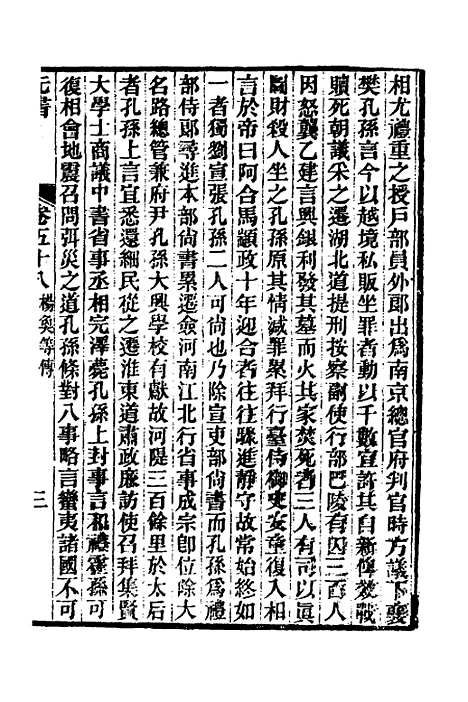 相尤禮重之授戶部員外郎出爲南京總官府判官時方議下襄
樊孔孫言今以越境私販坐罪者動以千數宜許其自新俾效戰
贖死朝議采之遷湖北道提刑按察副使行部巴陵有囚三百人
因怒龔乙建言興銀利發其墓而火其家焚死者三人有司以眞
圖財殺人坐之孔孫原其情減罪聚拜行臺侍御史安童復入相
言於帝曰阿合馬顓政十年迎合者往往驟進靜守故常始終如
一者獨劉宣張孔孫二人可尙也乃除宣吏部尙書而孔孫爲禮
部侍郞尋進本部尙書累遷僉河南江北行省事成宗卽位除大
名路總管兼府尹孔孫大興學校有獻故河隄三百餘里於太后
者孔孫上言宜悉還細民從之遷淮東道肅政廉訪使召拜集賢
大學士商議中書省事丞相完澤薨孔孫上封事言和禮霍孫可
復相會地震召問弭災之道孔孫條對八事略言蠻夷諸國不可
元書
卷五十八 楊奐等傳
三